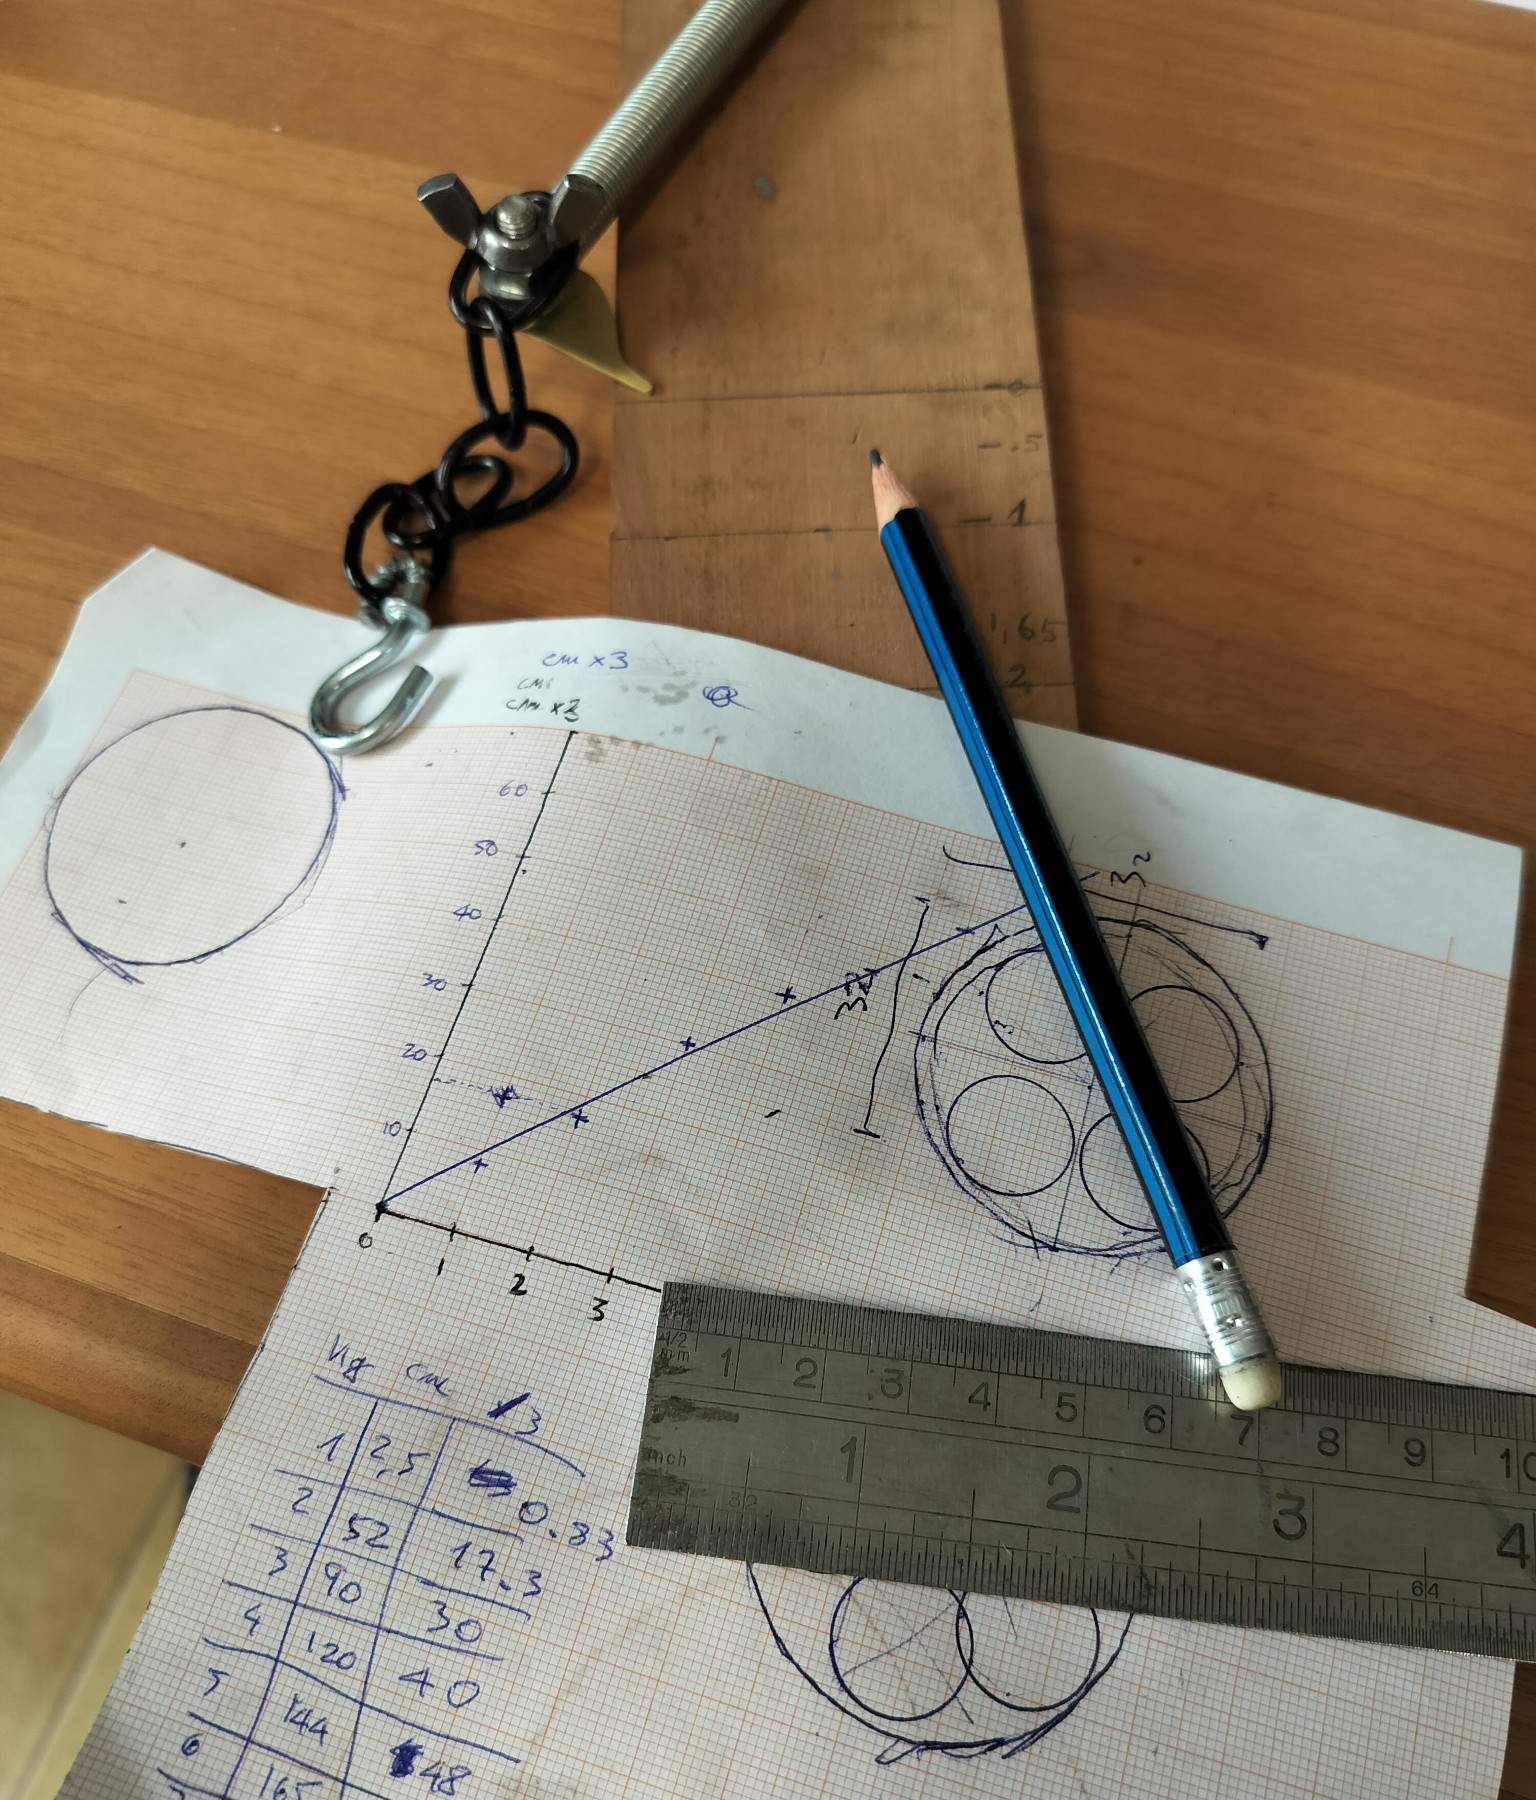 0
.5
1
1,65
2
cm x3
cm x3
60
50
40
30
20
10
0
1
2
3
32
32
Kg cm /3
1 2,5 0.83
2 52 17.3
3 90 30
4 120 40
5 144 48
6 165
1 2 3 4 5 6 7 8 9 10
inch 1 2 3 4
32
64